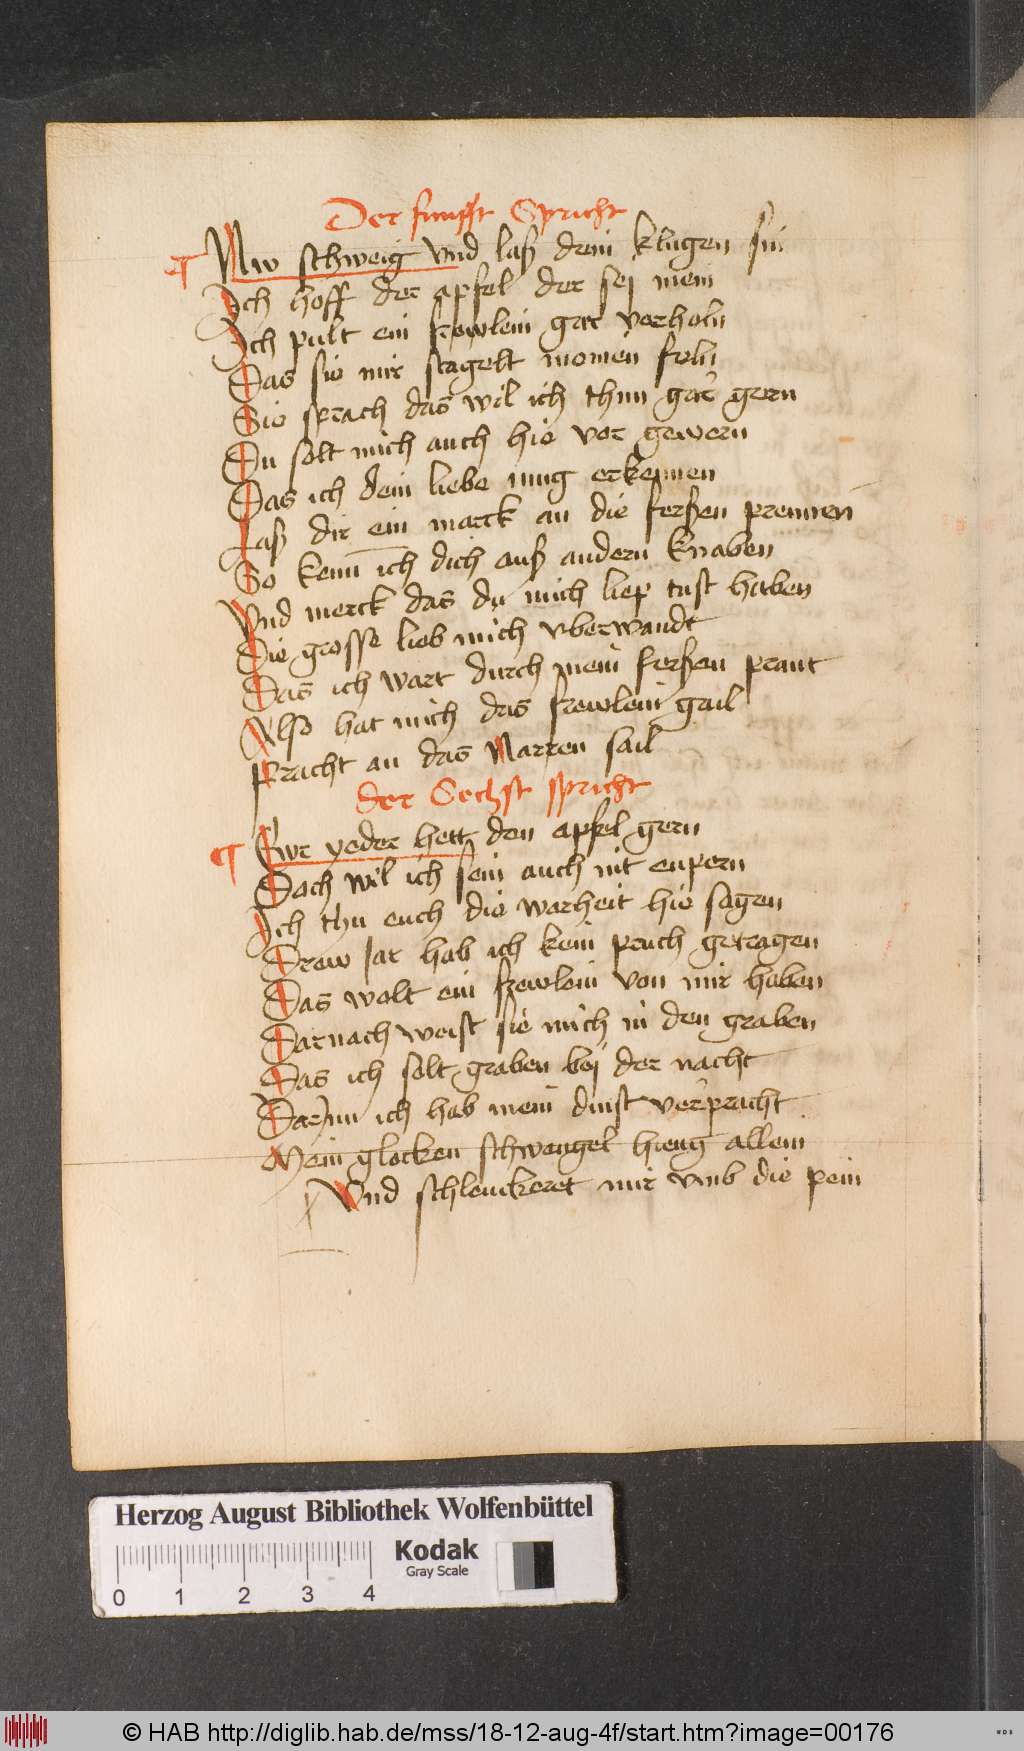 Der funfft Spricht
¶ Nw schweig vnd laß dein klugen sin
Ich hoff der apfel der sej mein
Ich pult ein frewlein gar verholn
Das sie mir stagelt meinen foln
Sie sprach das wil ich thun gar gern
Du solt mich auch hie vor gewern
Das ich dein liebe mug erkennen
Laß dir ein marck an die ferßen prennen
So kenn ich dich auß andern knaben
Vnd merck das du mich liep tust haben
Die grosse lieb mich vberwandt
Das ich wart durch mein ferßen prant
Also hat mich das frewlein gail
Pracht an das Narren sail
der Sechst spricht
¶ Ewr yeder hett den apfel gern
Doch wil ich sein auch nit enpern
Ich thu euch die warheit hie sagen
Drew Jar hab ich kein pruch getragen
Das wolt ein frewlein von mir haben
Darnach weist sie mich in den graben
Das ich solt graben bej der nacht
Darjnn ich hab mein dinst verpracht
Mein glocken schwengel hieng allein
Vnd schlenckeret mir vmb die pein
Herzog August Bibliothek Wolfenbüttel
Kodak
Gray Scale
0 1 2 3 4
© HAB http://diglib.hab.de/mss/18-12-aug-4f/start.htm?image=00176
WDB